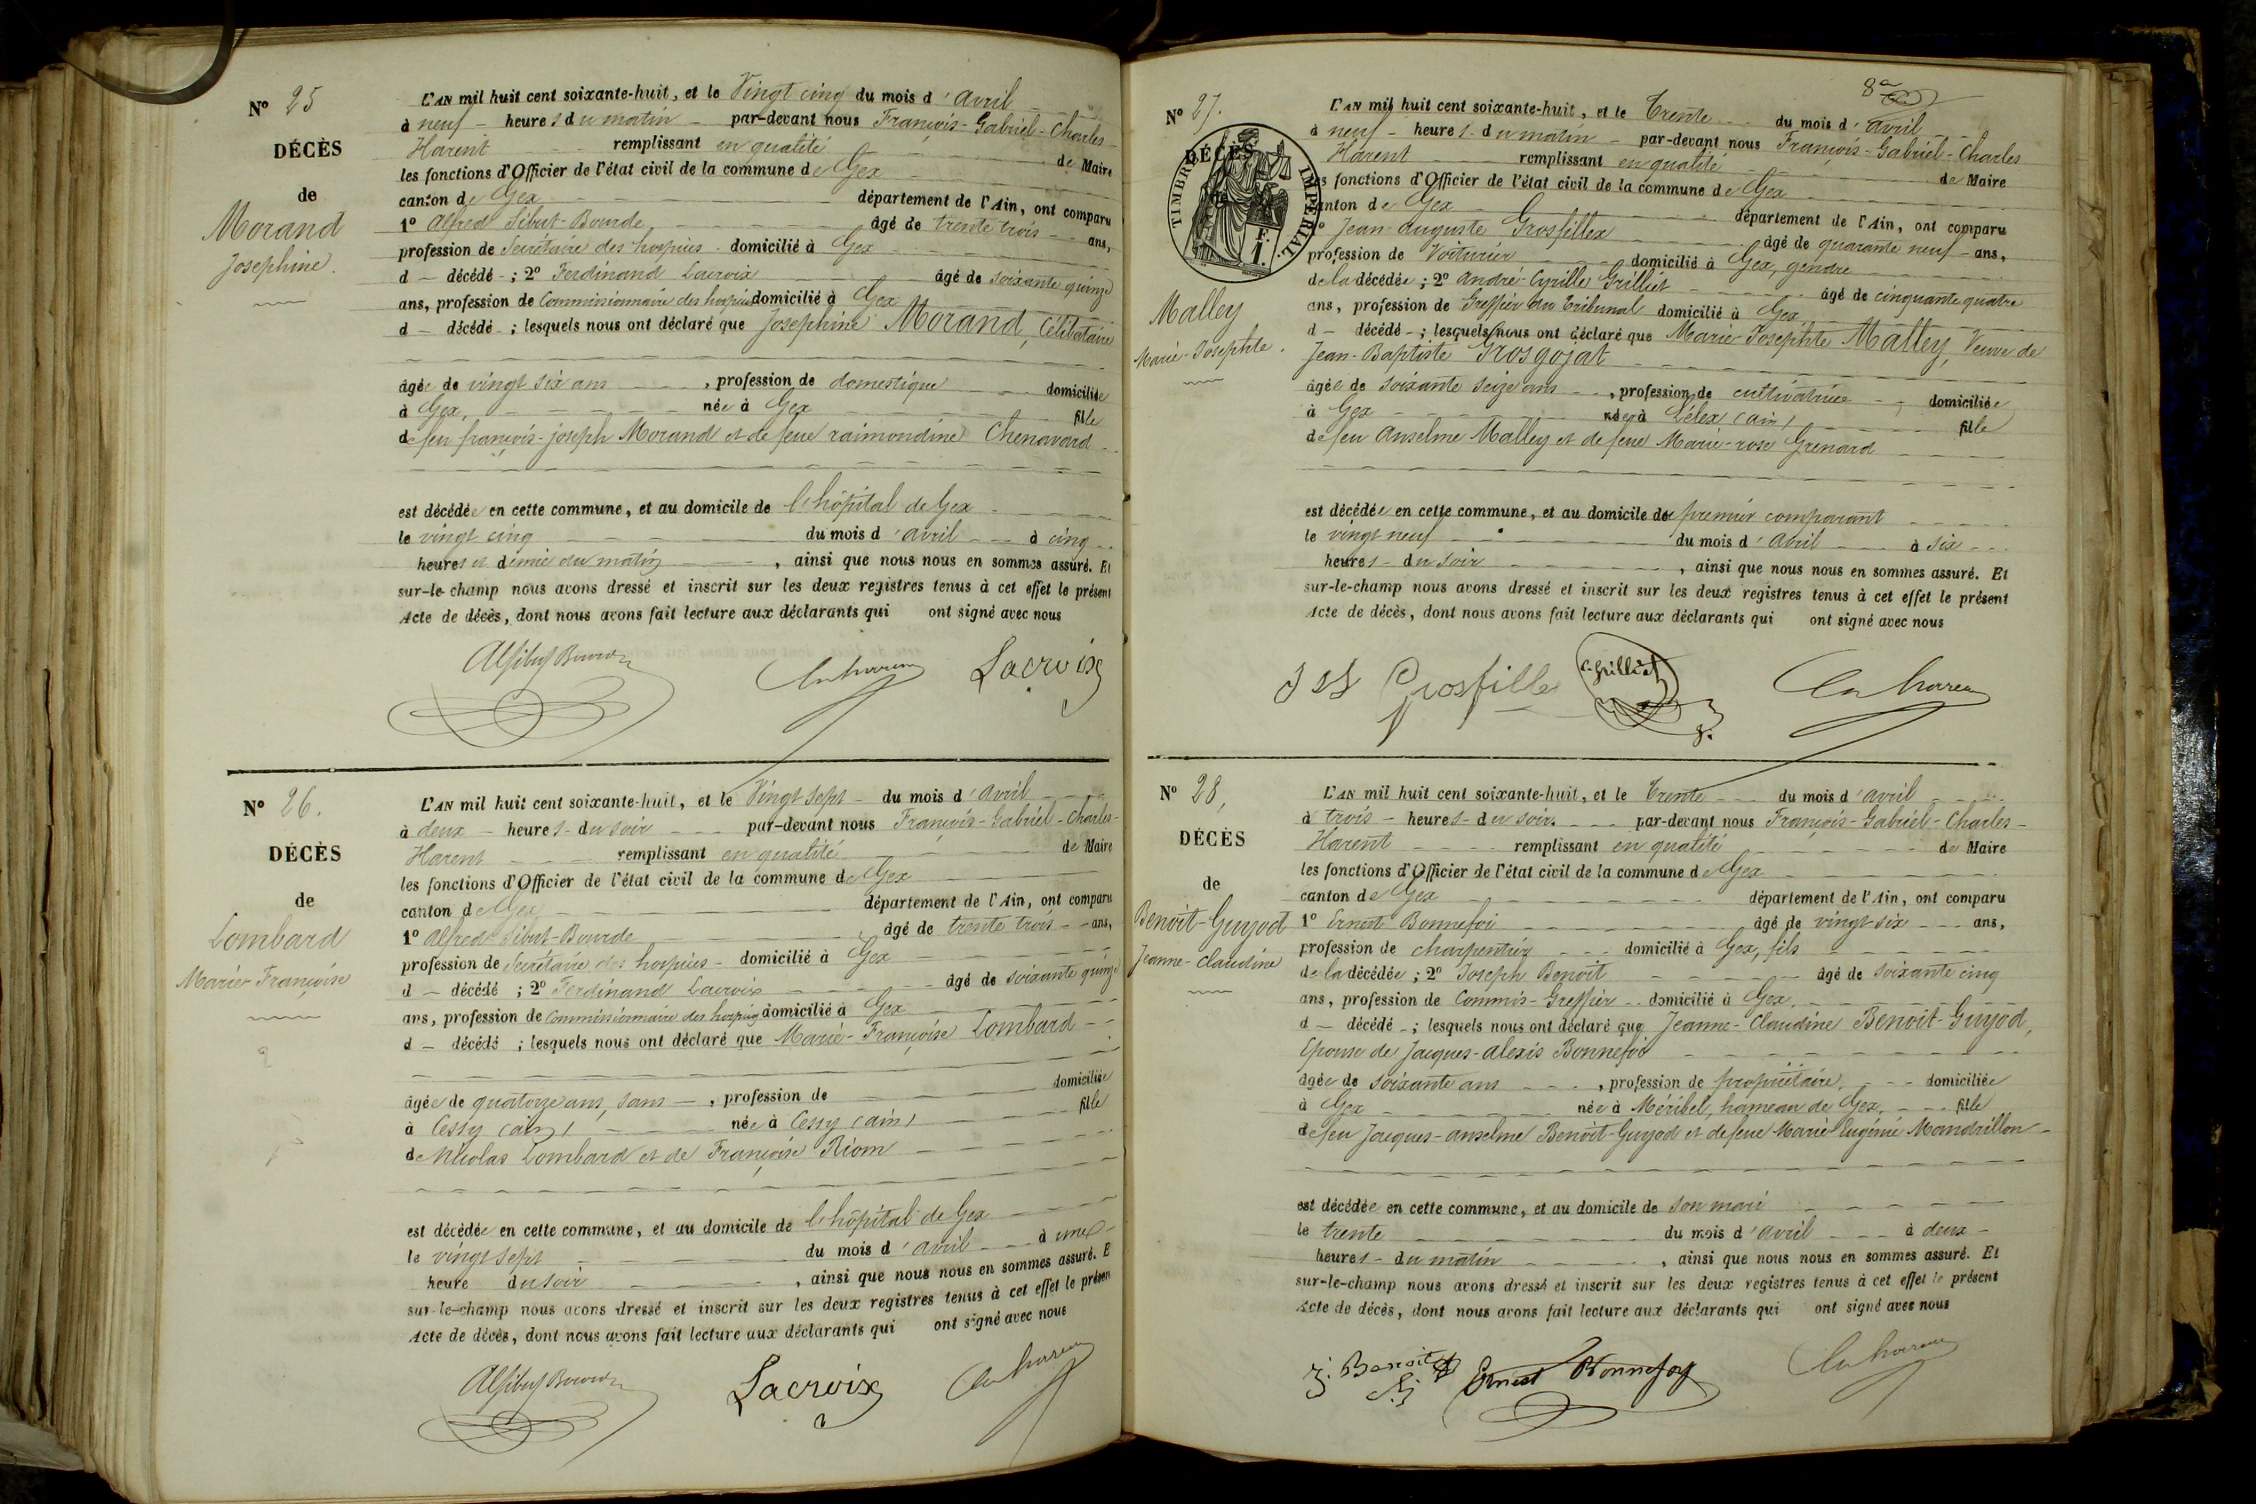 N° 25
DÉCÈS
de
Morand
Josephine.
L'AN mil huit cent soixante-huit, et le Vingt cinq du mois d'avril
à neuf heures du matin par-devant nous François-Gabriel-Charles-
Harent remplissant en qualité de Maire
les fonctions d'Officier de l'état civil de la commune de Gex
canton de Gex département de l'Ain, ont comparu
1° Alfred Sibut-Bourde âgé de trente trois ans,
profession de Secrétaire des hospices domicilié à Gex
d décédé ; 2° Ferdinand Lacroix âgé de soixante quinze
ans, profession de Commissionnaire des hospices domicilié à Gex
d décédé ; lesquels nous ont déclaré que Josephine Morand, Célibataire
âgée de vingt six ans, profession de domestique domiciliée
à Gex, née à Gex fille
de feu françois-joseph Morand et de feue raimondine Chenavard
est décédée en cette commune, et au domicile de l'hôpital de Gex
le vingt cinq du mois d'avril à cinq
heures et demie du matin, ainsi que nous nous en sommes assuré. Et
sur-le-champ nous avons dressé et inscrit sur les deux registres tenus à cet effet le présent
Acte de décès, dont nous avons fait lecture aux déclarants qui ont signé avec nous
Lacroix
N° 26.
DÉCÈS
de
Lombard
Marie Françoise
L'AN mil huit cent soixante-huit, et le Vingt sept du mois d'avril
à deux heures du soir par-devant nous François-Gabriel-Charles-
Harent remplissant en qualité de Maire
les fonctions d'Officier de l'état civil de la commune de Gex
canton de Gex département de l'Ain, ont comparu
1° Alfred Sibut-Bourde âgé de trente trois ans,
profession de Secrétaire des hospices domicilié à Gex
d décédé ; 2° Ferdinand Lacroix âgé de soixante quinze
ans, profession de Commissionnaire des hospices domicilié à Gex
d décédé ; lesquels nous ont déclaré que Marie-Françoise Lombard
âgée de quatorze ans, sans, profession de domiciliée
à Cessy (ain) née à Cessy (ain) fille
de Nicolas Lombard et de Françoise Riom
est décédée en cette commune, et au domicile de l'hôpital de Gex
le vingt sept du mois d'avril à une
heure du soir, ainsi que nous nous en sommes assuré. E
sur-le-champ nous avons dressé et inscrit sur les deux registres tenus à cet effet le présen
Acte de décès, dont nous avons fait lecture aux déclarants qui ont signé avec nous
Lacroix
8
N° 27.
DÉCÈS
TIMBRE IMPÉRIAL
F. 1.
Malley
Marie-Josephte.
L'AN mil huit cent soixante-huit, et le Trente du mois d'avril
à neuf heures du matin par-devant nous François-Gabriel-Charles
Harent remplissant en qualité de Maire
es fonctions d'Officier de l'état civil de la commune de Gex
anton de Gex département de l'Ain, ont comparu
1° Jean-Auguste Grosfillex âgé de quarante neuf ans,
profession de Voiturier domicilié à Gex, gendre
de la décédée ; 2° André-Cyrille Grilliet âgé de cinquante quatre
ans, profession de Greffier du Tribunal domicilié à Gex
d décédé ; lesquels nous ont déclaré que Marie-Josephte Malley, Veuve de
Jean-Baptiste Grosgojat
âgée de soixante seize ans, profession de cultivatrice domiciliée
à Gex née à Lélex (ain) fille
de feu Anselme Malley et de feue Marie-rose Grenard
est décédée en cette commune, et au domicile du premier comparant
le vingt neuf du mois d'avril à six
heures du soir, ainsi que nous nous en sommes assuré. Et
sur-le-champ nous avons dressé et inscrit sur les deux registres tenus à cet effet le présent
Acte de décès, dont nous avons fait lecture aux déclarants qui ont signé avec nous
Grosfille C. Grilliet
N° 28,
DÉCÈS
de
Benoit-Guyod
Jeanne-Claudine
L'AN mil huit cent soixante-huit, et le Trente du mois d'avril
à trois heures du soir par-devant nous François-Gabriel-Charles-
Harent remplissant en qualité de Maire
les fonctions d'Officier de l'état civil de la commune de Gex
canton de Gex département de l'Ain, ont comparu
1° Ernest Bonnefoi âgé de vingt six ans,
profession de charpentier domicilié à Gex, fils
de la décédée ; 2° Joseph Benoit âgé de soixante cinq
ans, profession de Commis-Greffier domicilié à Gex.
d décédé ; lesquels nous ont déclaré que Jeanne-Claudine Benoit-Guyod,
Epouse de Jacques-alexis Bonnefoi
âgée de soixante ans, profession de propriétaire, domiciliée
à Gex née à Méribel, hameau de Gex, fille
de feu Jacques-anselme Benoit-Guyod et de feue Marie Eugénie Mandrillon
est décédée en cette commune, et au domicile de son mari
le trente du mois d'avril à deux
heures du matin, ainsi que nous nous en sommes assuré. Et
sur-le-champ nous avons dressé et inscrit sur les deux registres tenus à cet effet le présent
Acte de décès, dont nous avons fait lecture aux déclarants qui ont signé avec nous
J. Benoit Ernest Bonnefoy